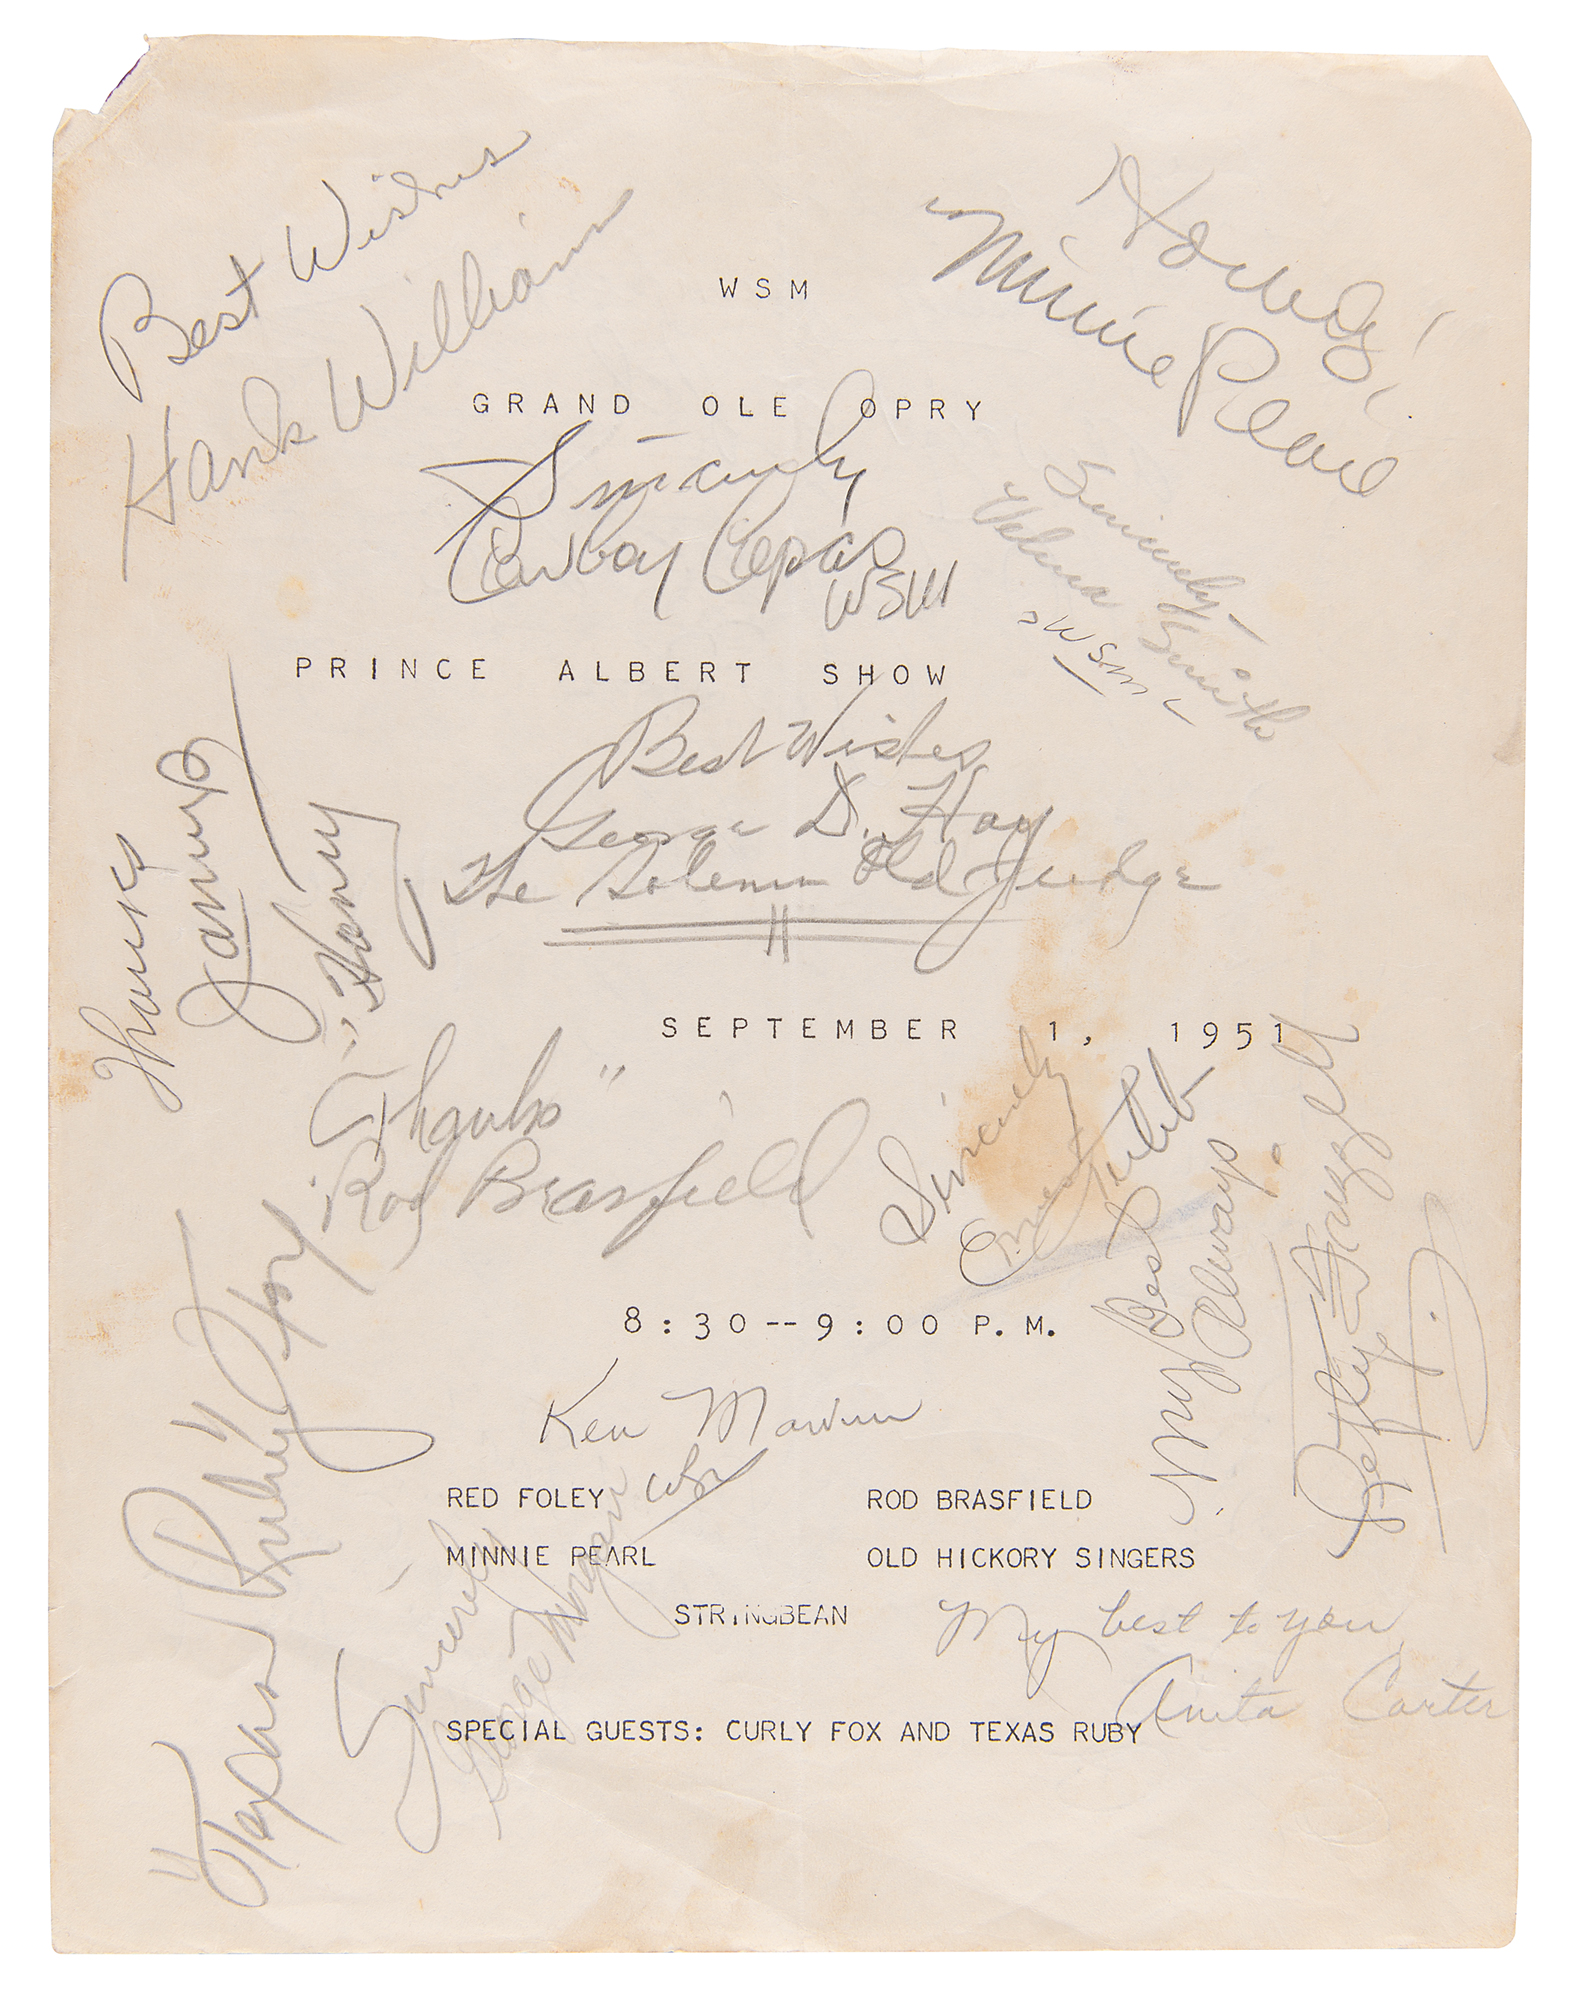 Best Wishes
Hank Williams
Howdy!
Minnie Pearl
WSM
GRAND OLE OPRY
Sincerely
Cowboy Copas
WSM
Sincerely
Velma Smith
WSM
PRINCE ALBERT SHOW
Best Wishes
George D. Hay
The Solemn Old Judge
Thanks
Jamup
"Honey"
SEPTEMBER 1, 1951
"Thanks"
Rod Brasfield
Sincerely
Ernest Tubb
My Best
Always
8:30--9:00 P.M.
Ken Marvin
WSM
RED FOLEY
ROD BRASFIELD
MINNIE PEARL
OLD HICKORY SINGERS
STRINGBEAN
"Texas Ruby" Fox
Sincerely
George Morgan
My best to you
Anita Carter
SPECIAL GUESTS: CURLY FOX AND TEXAS RUBY